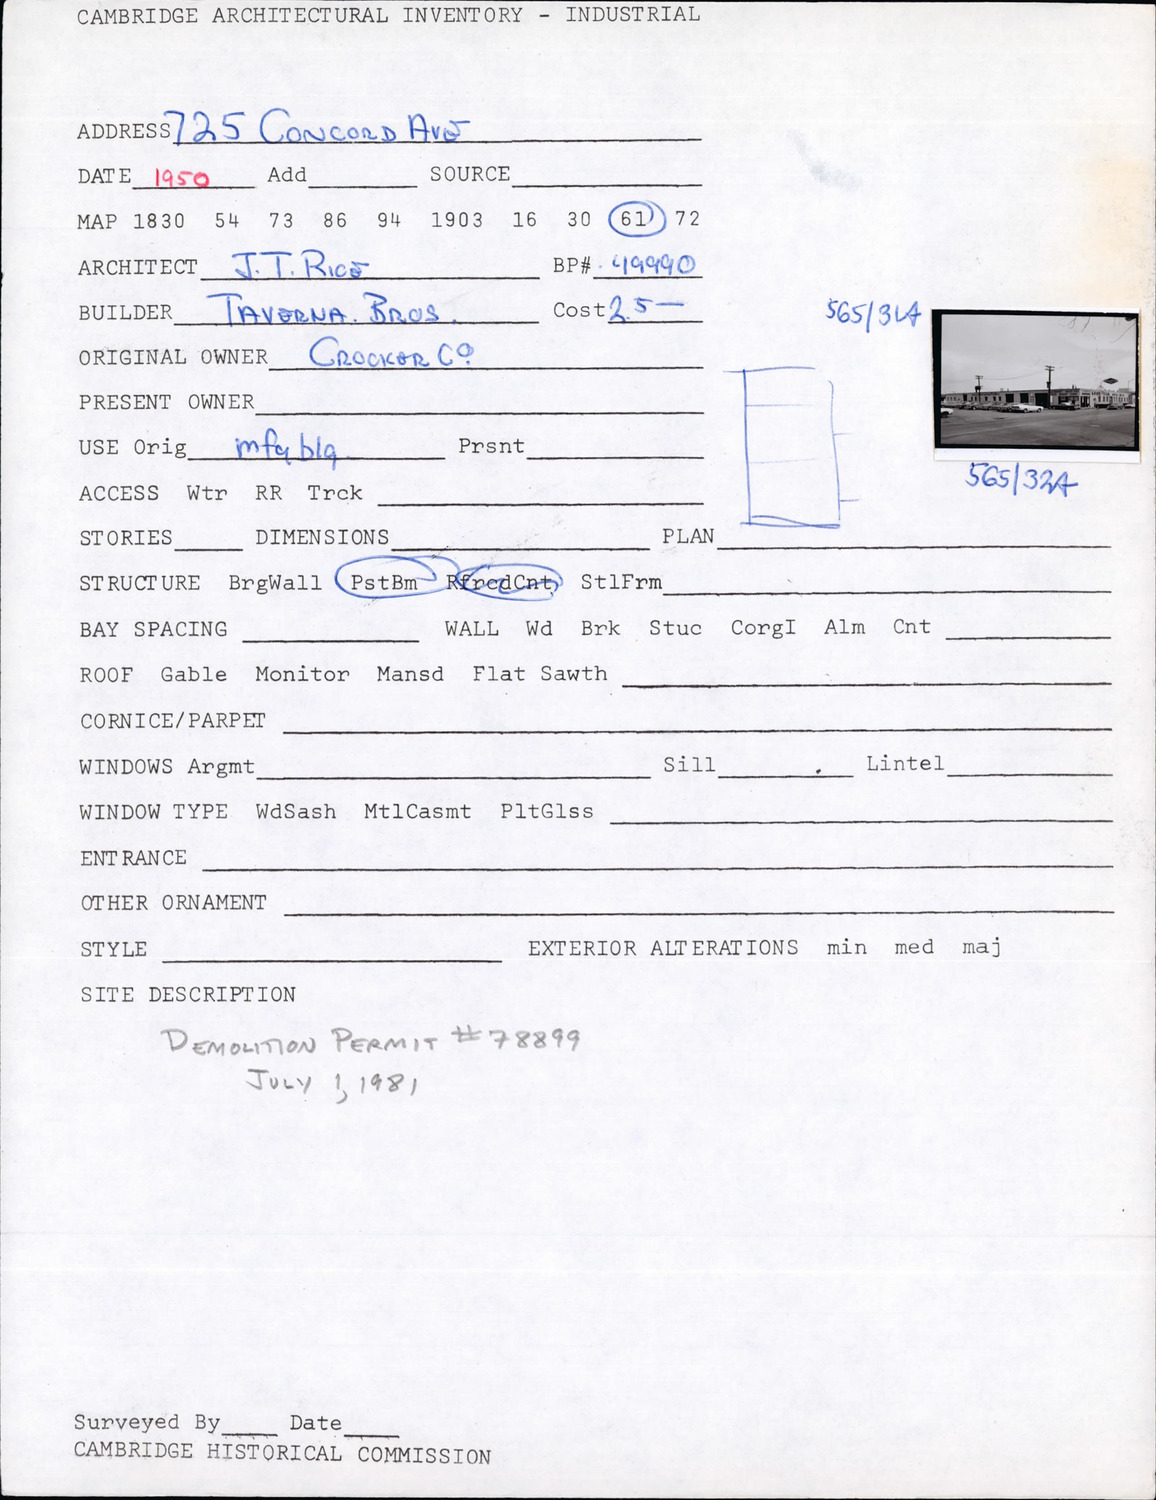 CAMBRIDGE ARCHITECTURAL INVENTORY - INDUSTRIAL
ADDRESS 725 CONCORD AVE
DATE 1950 Add SOURCE
MAP 1830 54 73 86 94 1903 16 30 61 72
ARCHITECT J.T. RICE BP# 49990
BUILDER TAVERNA BROS. Cost 25—
565/31A
ORIGINAL OWNER CROCKER Co
PRESENT OWNER
USE Orig mfg blg Prsnt
565/32A
ACCESS Wtr RR Trck
STORIES DIMENSIONS PLAN
STRUCTURE BrgWall PstBm RfrcdCnt StlFrm
BAY SPACING WALL Wd Brk Stuc CorgI Alm Cnt
ROOF Gable Monitor Mansd Flat Sawth
CORNICE/PARPET
WINDOWS Argmt Sill Lintel
WINDOW TYPE WdSash MtlCasmt PltGlss
ENTRANCE
OTHER ORNAMENT
STYLE EXTERIOR ALTERATIONS min med maj
SITE DESCRIPTION
DEMOLITION PERMIT #78899
JULY 1, 1981
Surveyed By Date
CAMBRIDGE HISTORICAL COMMISSION